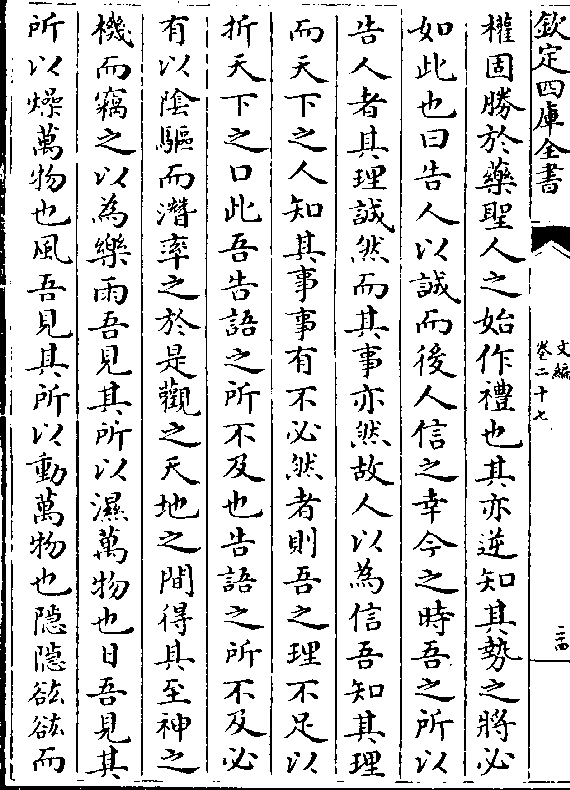 欽定四庫全書
文編
卷二十七
二四
權固勝於藥聖人之始作禮也其亦逆知其勢之將必
如此也曰告人以誠而後人信之幸今之時吾之所以
告人者其理誠然而其事亦然故人以為信吾知其理
而天下之人知其事事有不必然者則吾之理不足以
折天下之口此吾告語之所不及也告語之所不及必
有以陰驅而潛率之於是觀之天地之間得其至神之
機而竊之以為樂雨吾見其所以濕萬物也日吾見其
所以燥萬物也風吾見其所以動萬物也隱隱谹谹而